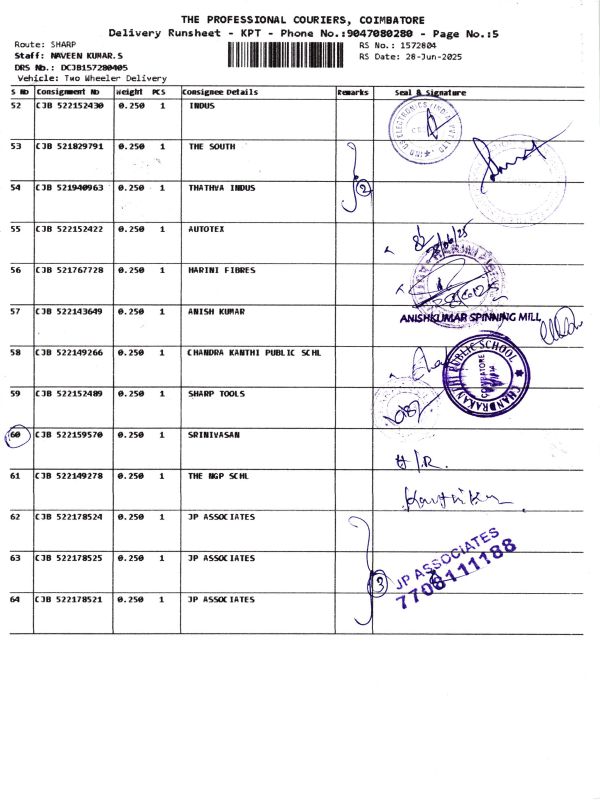 THE PROFESSIONAL COURIERS, COIMBATORE
Delivery Runsheet - KPT - Phone No.:9047080280 - Page No.:5
Route: SHARP
RS No.: 1572804
Staff: NAVEEN KUMAR.S
RS Date: 28-Jun-2025
DRS No.: DCJB157280405
Vehicle: Two Wheeler Delivery
S No Consignment No Weight PCS Consignee Details Remarks Seal & Signature
52 CJB 522152430 0.250 1 INDUS
53 CJB 521829791 0.250 1 THE SOUTH
54 CJB 521940963 0.250 1 THATHVA INDUS
2
55 CJB 522152422 0.250 1 AUTOTEX
56 CJB 521767728 0.250 1 HARINI FIBRES
57 CJB 522143649 0.250 1 ANISH KUMAR
ANISHKUMAR SPINNING MILL
58 CJB 522149266 0.250 1 CHANDRA KANTHI PUBLIC SCHL
CHANDRAKANTHI PUBLIC SCHOOL
COIMBATORE
59 CJB 522152489 0.250 1 SHARP TOOLS
60 CJB 522159570 0.250 1 SRINIVASAN
61 CJB 522149278 0.250 1 THE NGP SCHL
62 CJB 522178524 0.250 1 JP ASSOCIATES
63 CJB 522178525 0.250 1 JP ASSOCIATES
3
JP ASSOCIATES
7708111188
64 CJB 522178521 0.250 1 JP ASSOCIATES